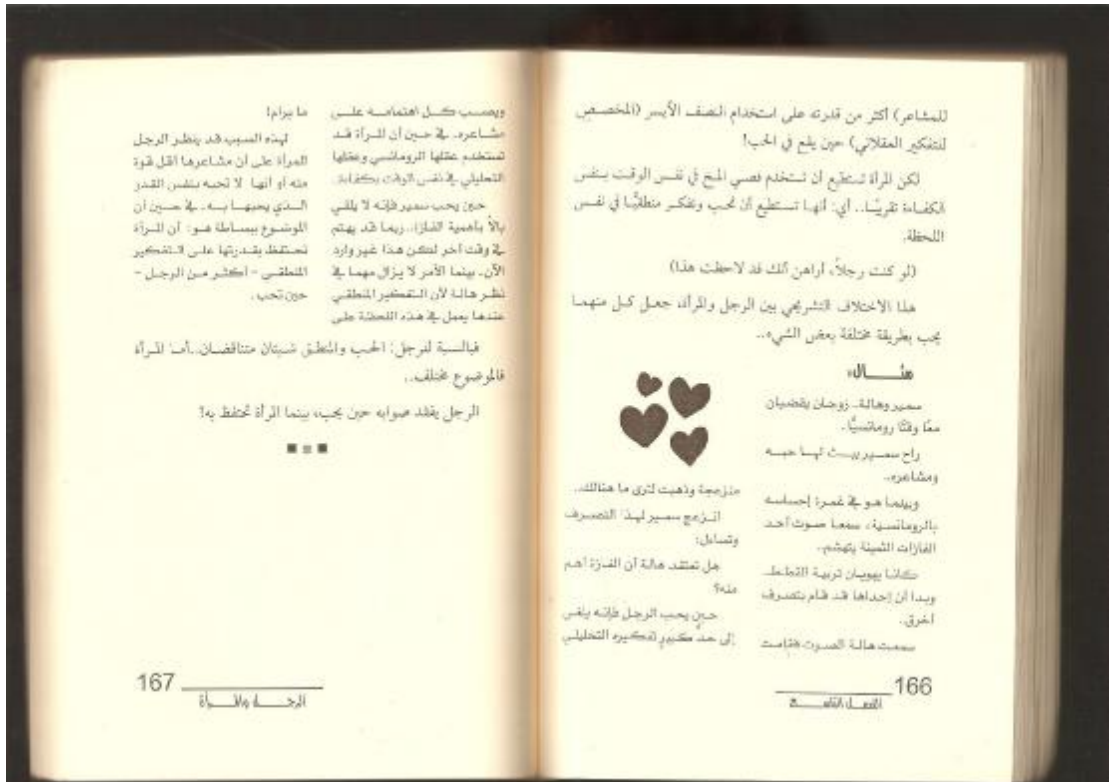 للمشاعر) أكثر من قدرته على استخدام النصف الأيسر (المخصص
للتفكير العقلاني) حين يقع في الحب!
لكن المرأة تستطيع أن تستخدم فصي المخ في نفس الوقت بنفس
الكفاءة تقريبًا.. أي: أنها تستطيع أن تحب وتفكر منطقيًّا في نفس
اللحظة.
(لو كنت رجلاً، أراهن أنك قد لاحظت هذا)
هذا الاختلاف التشريحي بين الرجل والمرأة، جعل كل منهما
يحب بطريقة مختلفة بعض الشيء..
مثـــــال:
سمير وهالة.. زوجان يقضيان
معًا وقتًا رومانسيًّا.
راح سمير يبث لها حبه
ومشاعره.
وبينما هو في غمرة إحساسه
بالرومانسية، سمعا صوت أحد
الفازات الثمينة يتهشم.
كانا يهويان تربية القطط..
وبدا أن إحداها قد قام بتصرف
أخرق..
سمعت هالة الصوت فقامت
منزعجة وذهبت لترى ما هنالك..
انزعج سمير لهذا التصرف
وتساءل:
هل تعتقد هالة أن الفازة أهم
منه؟
حين يحب الرجل فإنه يلغي
إلى حد كبير تفكيره التحليلي
166
الفصل التاسع
ويصب كل اهتمامه على
مشاعره. في حين أن المرأة قد
تستخدم عقلها الرومانسي وعقلها
التحليلي في نفس الوقت بكفاءة..
حين يحب سمير فإنه لا يلقي
بالاً بأهمية الفازة.. ربما قد يهتم
في وقت آخر لكن هذا غير وارد
الآن.. بينما الأمر لا يزال مهما في
نظر هالة لأن التفكير المنطقي
عندها يعمل في هذه اللحظة على
ما يرام!
لهذه السبب قد ينظر الرجل
للمرأة على أن مشاعرها أقل قوة
منه أو أنها لا تحبه بنفس القدر
الذي يحبها به.. في حين أن
الموضوع ببساطة هو: أن المرأة
تحتفظ بقدرتها على التفكير
المنطقي - أكثر من الرجل -
حين تحب.
فبالنسبة للرجل: الحب والمنطق شيئان متناقضان..أما المرأة
فالموضوع مختلف..
الرجل يفقد صوابه حين يحب، بينما المرأة تحتفظ به!
167
الرجـــل والمـــرأة